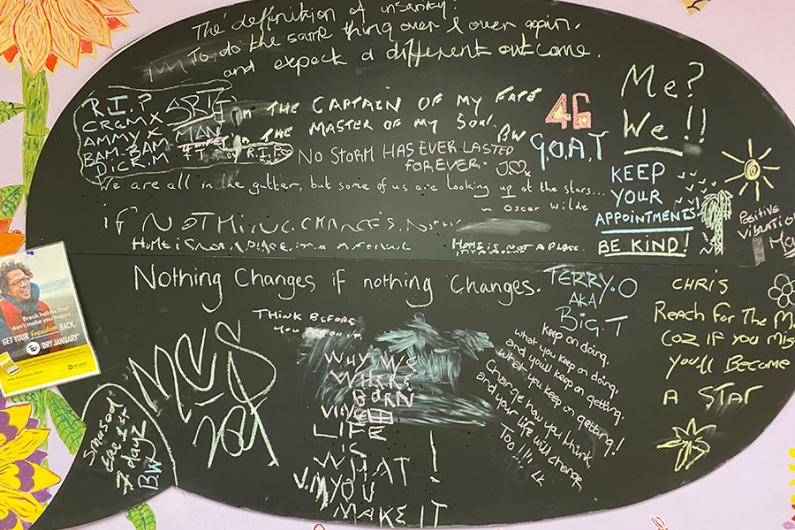 The definition of insanity:
To do the same thing over & over again.
and expect a different outcome.
R.I.P
ART
MAN
AMMY X
BAM-BAM
D.C.R.M
I'm THE CAPTAIN OF MY FATE
I'm THE MASTER OF MY SOUL.
BW
NO STORM HAS EVER LASTED
FOREVER.
46
G.O.A.T
Me?
We!!
We are all in the gutter, but some of us are looking up at the stars...
~ Oscar Wilde
KEEP
YOUR
APPOINTMENTS!
BE KIND!
POSITIVE
VIBRATION
if NOTHING CHANGES,
HOME IS NOT A PLACE, it's A FEELING
HOME IS NOT A PLACE.
Nothing Changes if nothing Changes.
TERRY.O
AKA
BIG.T
CHRIS
REACH FOR THE
COZ IF YOU
YOU'LL BECOME
A STAR
Break habits that
don't make you happy.
GET YOUR freedom BACK.
DRY JANUARY
THINK BEFORE
MCS
BW
WHY WE
WHERE
BORN
LIFE
IS
WHAT!
YOU
MAKE IT
Keep on doing
what you keep on doing
and you'll keep on getting
what you keep on getting!
Change how you think
and your life will change
Too!!!